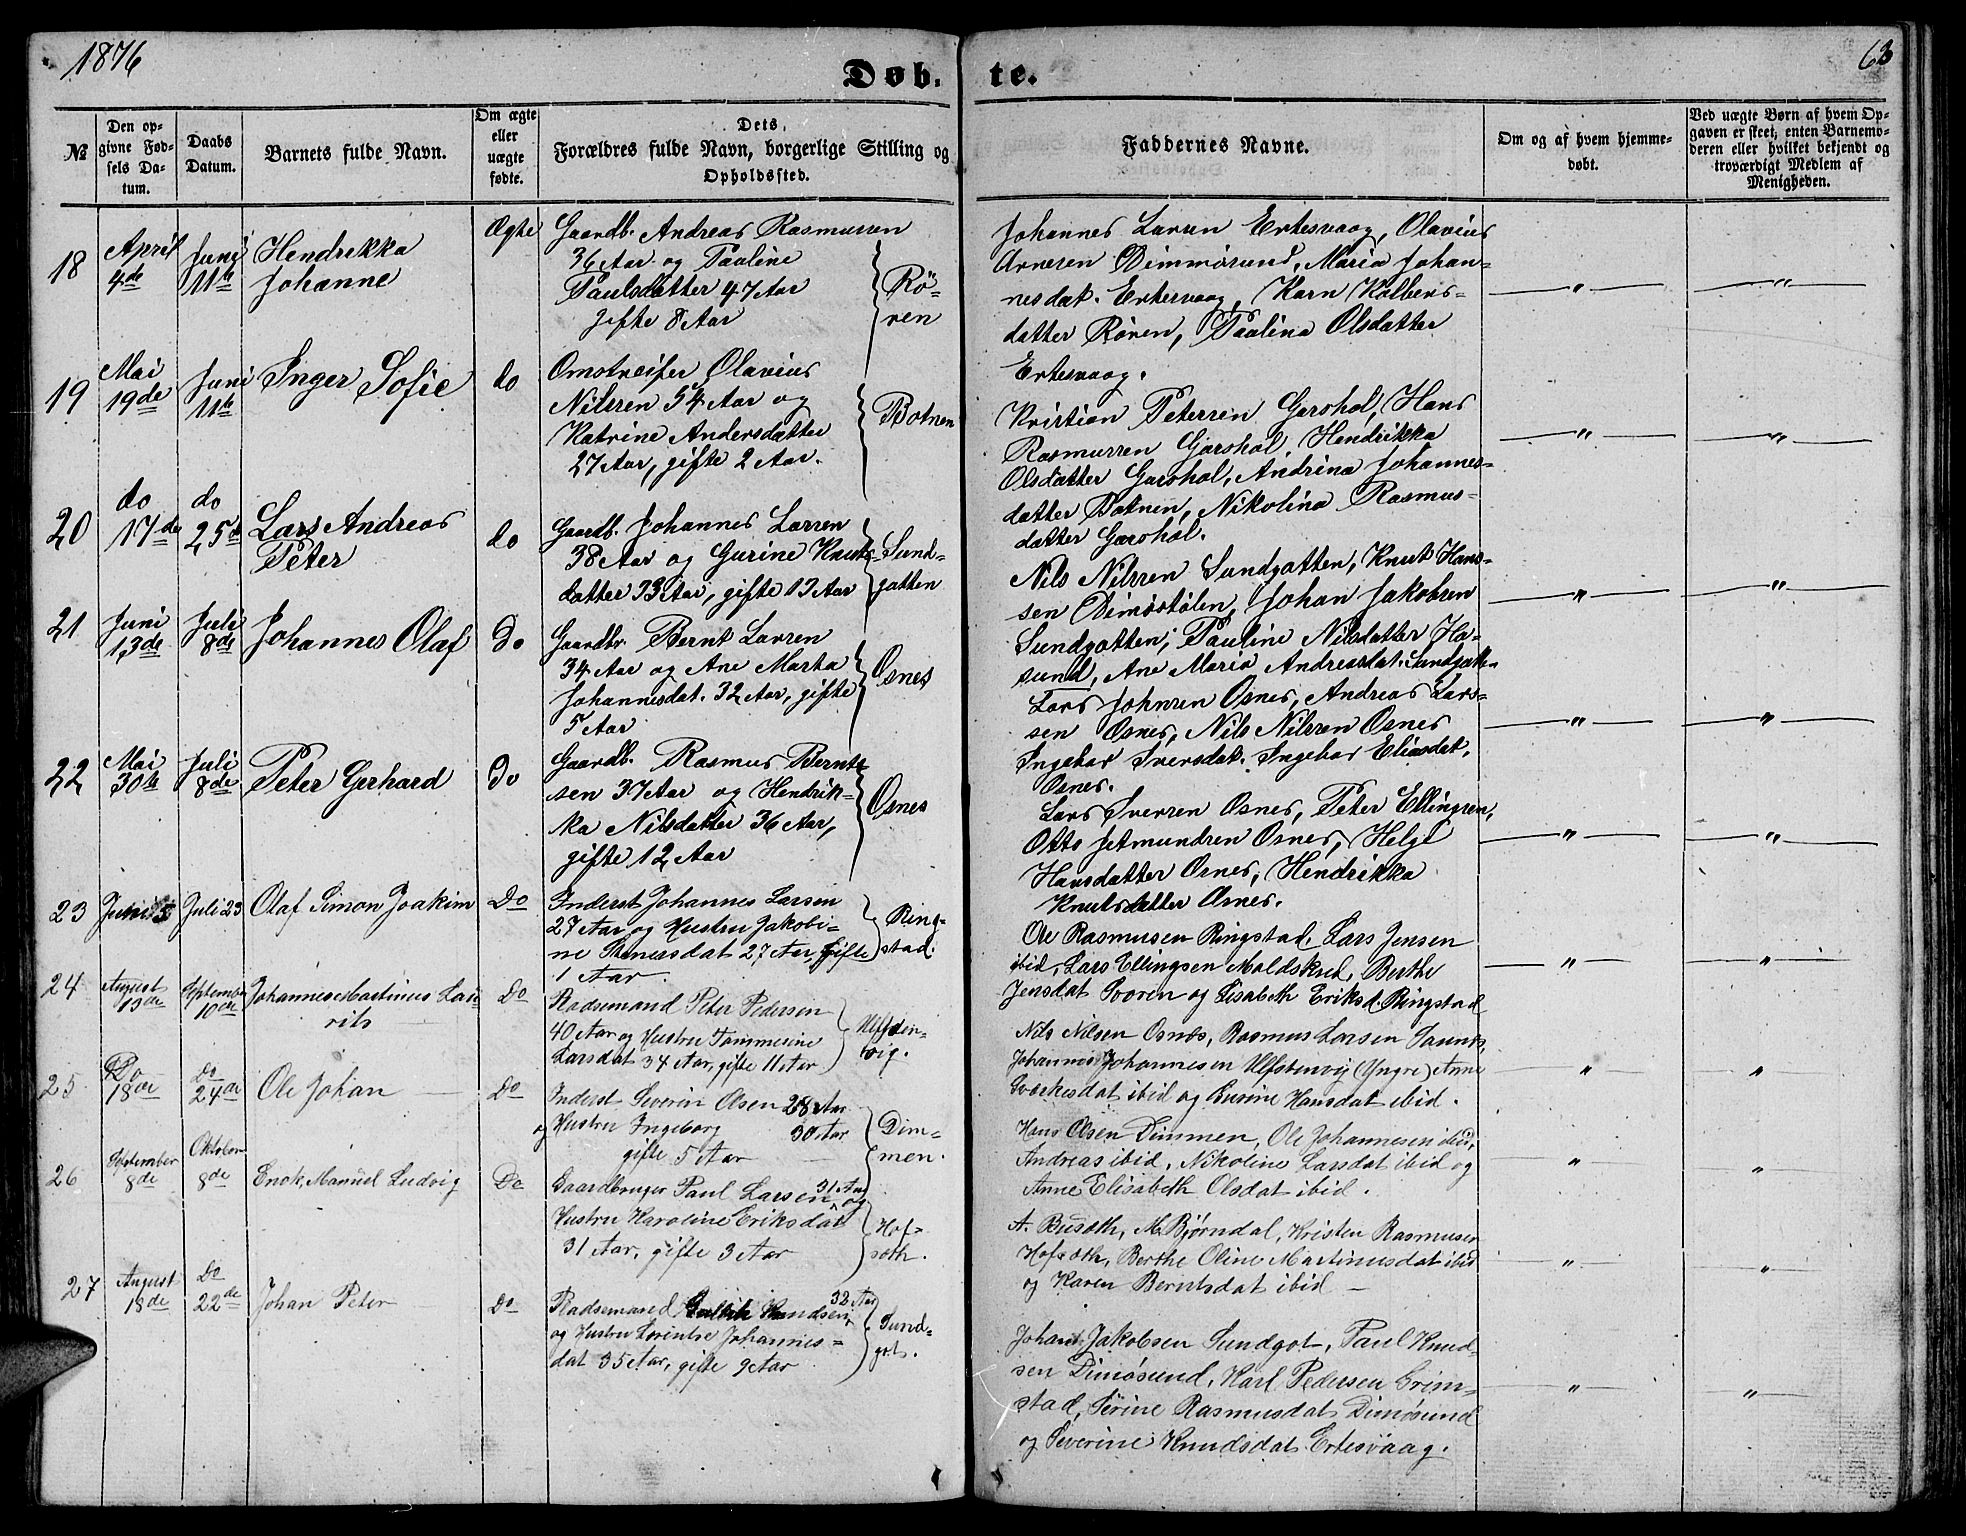 1876
Døb-
te.
63
№
Den op-
givne Fød-
sels Da-
tum.
Daabs
Datum.
Barnets fulde Navn.
Om ægte
eller
uægte
fødte.
Dets
Forældres fulde Navn, borgerlige Stilling og
Opholdssted.
Faddernes Navne.
Om og af hvem hjemme-
døbt.
Ved uægte Børn af hvem Op-
gaven er skeet, enten Barnemo-
deren eller hvilket bekjendt og
troværdigt Medlem af
Menigheden.
18
April
4de
Juni
11te
Hendrikka
Johanne
Ægte
Gaardb. Andreas Rasmussen
36 Aar og Pauline
Paulsdatter 47 Aar
gifte 8 Aar
Rö-
ren
Johannes Larsen Ertesvaag, Olavius
Arnesen Dimmøsund, Maria Johan-
nesdat. Ertesvaag, Karn Kolbens-
datter Røren, Paulina Olsdatter
Ertesvaag.
— " —
— " —
19
Mai
19de
Juni
11te
Inger Sofie
do
Omstreifer Olavius
Nilssen 54 Aar og
Katrine Andersdatter
27 Aar, gifte 2 Aar.
Botnen
Kristian Peterssen Garshol, Hans
Rasmussen Garshol, Hendrikka
Olsdatter Garshol, Andrina Johannes-
datter Botnen, Nikolina Rasmus-
datter Garshol.
— " —
— " —
20
do
17de
do
25de
Lars Andreas
Peter
do
Gaardb. Johannes Larsen
38 Aar og Gurine Knuts-
datter 33 Aar, gifte 13 Aar
Sund-
gatten
Nils Nilssen Sundgatten, Knut Hans-
sen Dimøstølen, Johan Jakobsen
Sundgotten, Pauline Nilsdatter Ha-
sund, Ane Maria Andreasdat. Sundgott-
— " —
— " —
21
Juni
13de
Juli
8de
Johannes Olaf
Do
Gaardbr Bernt Larsen
34 Aar og Ane Marta
Johannesdat. 32 Aar, gifte
5 Aar
Osnes
Lars Johnsen Osnes, Andreas Lars-
sen Osnes, Nils Nilssen Osnes
Ingebor Iversdat. Ingebor Eliasdat,
Osnes.
— " —
— " —
22
Mai
30te
Juli
8de
Peter Gerhard
Do
Gaardb. Rasmus Bernt-
sen 37 Aar og Hendrik-
ka Nilsdatter 36 Aar,
gifte 12 Aar
Osnes
Lars Iversen Osnes, Peter Ellingsen,
Otto Jetmundsen Osnes, Helge
Hansdatter Osnes, Hendrikka
Knutsdatter Osnes.
— " —
— " —
23
Juni 5
Juli 23
Olaf Simon Joakim
Do
Inderst Johannes Larsen
27 Aar og Hustru Jakobi-
ne Steinersdat 27 Aar, gifte
1 Aar
Ring-
stad.
Ole Rasmusen Ringstad, Lars Jensen
ibid, Lars Ellingsen Moldskred, Berthe
Jensdat Sooren og Lisabeth Eriksd. Ringstad
— " —
— " —
24
August
13de
September
10de
Johannes Martinus Lau-
rits
Do
Kadsemand Peter Pedersen
40 Aar og Hustru Tommesine
Larsdat 34 Aar, gifte 11 Aar
Ulfsten-
vig.
Nils Nilsen Osnes, Rasmus Larsen Saunes,
Johannes Johannesen Ulfstenvig (Yngre) Anne
Sværkesdat ibid og Gurine Hansdat ibid.
— " —
"
25
Do
18de
Do
24de
Ole Johan
Do
Inderst Severin Olsen 28 Aar
og Hustru Ingeborg 30 Aar
gifte 5 Aar
Dim-
men.
Hans Olsen Dimmen, Ole Johannesen ibid,
Andreas ibid, Nikoline Larsdat ibid og
Anne Elisabeth Olsdat ibid.
— " —
"
26
September
8de
Oktober
8de
Enok Manuel Ludvig
Do
Gaardbruger Paul Larsen 31 Aar og
Hustru Karoline Eriksdat
31 Aar, gifte 3 Aar
Hof-
seth.
A. Buseth, M. Bjørndal, Kristen Rasmusen
Hofseth, Berthe Oline Martinusdat ibid
og Karen Berntsdat ibid —
— " —
— " —
27
August
18de
Do
22de
Johan Peter
Do
Kadsemand Knudsen 32 Aar
og Hustru Lorentse Johannes-
dat 35 Aar, gifte 9 Aar
Sund-
got.
Johan Jakobsen Sundgot, Paul Knud-
sen Dimøsund, Karl Pedersen Grim-
stad, Serine Rasmusdat Dimøsund
og Severine Knudsdat Ertesvaag.
— " —
— " —